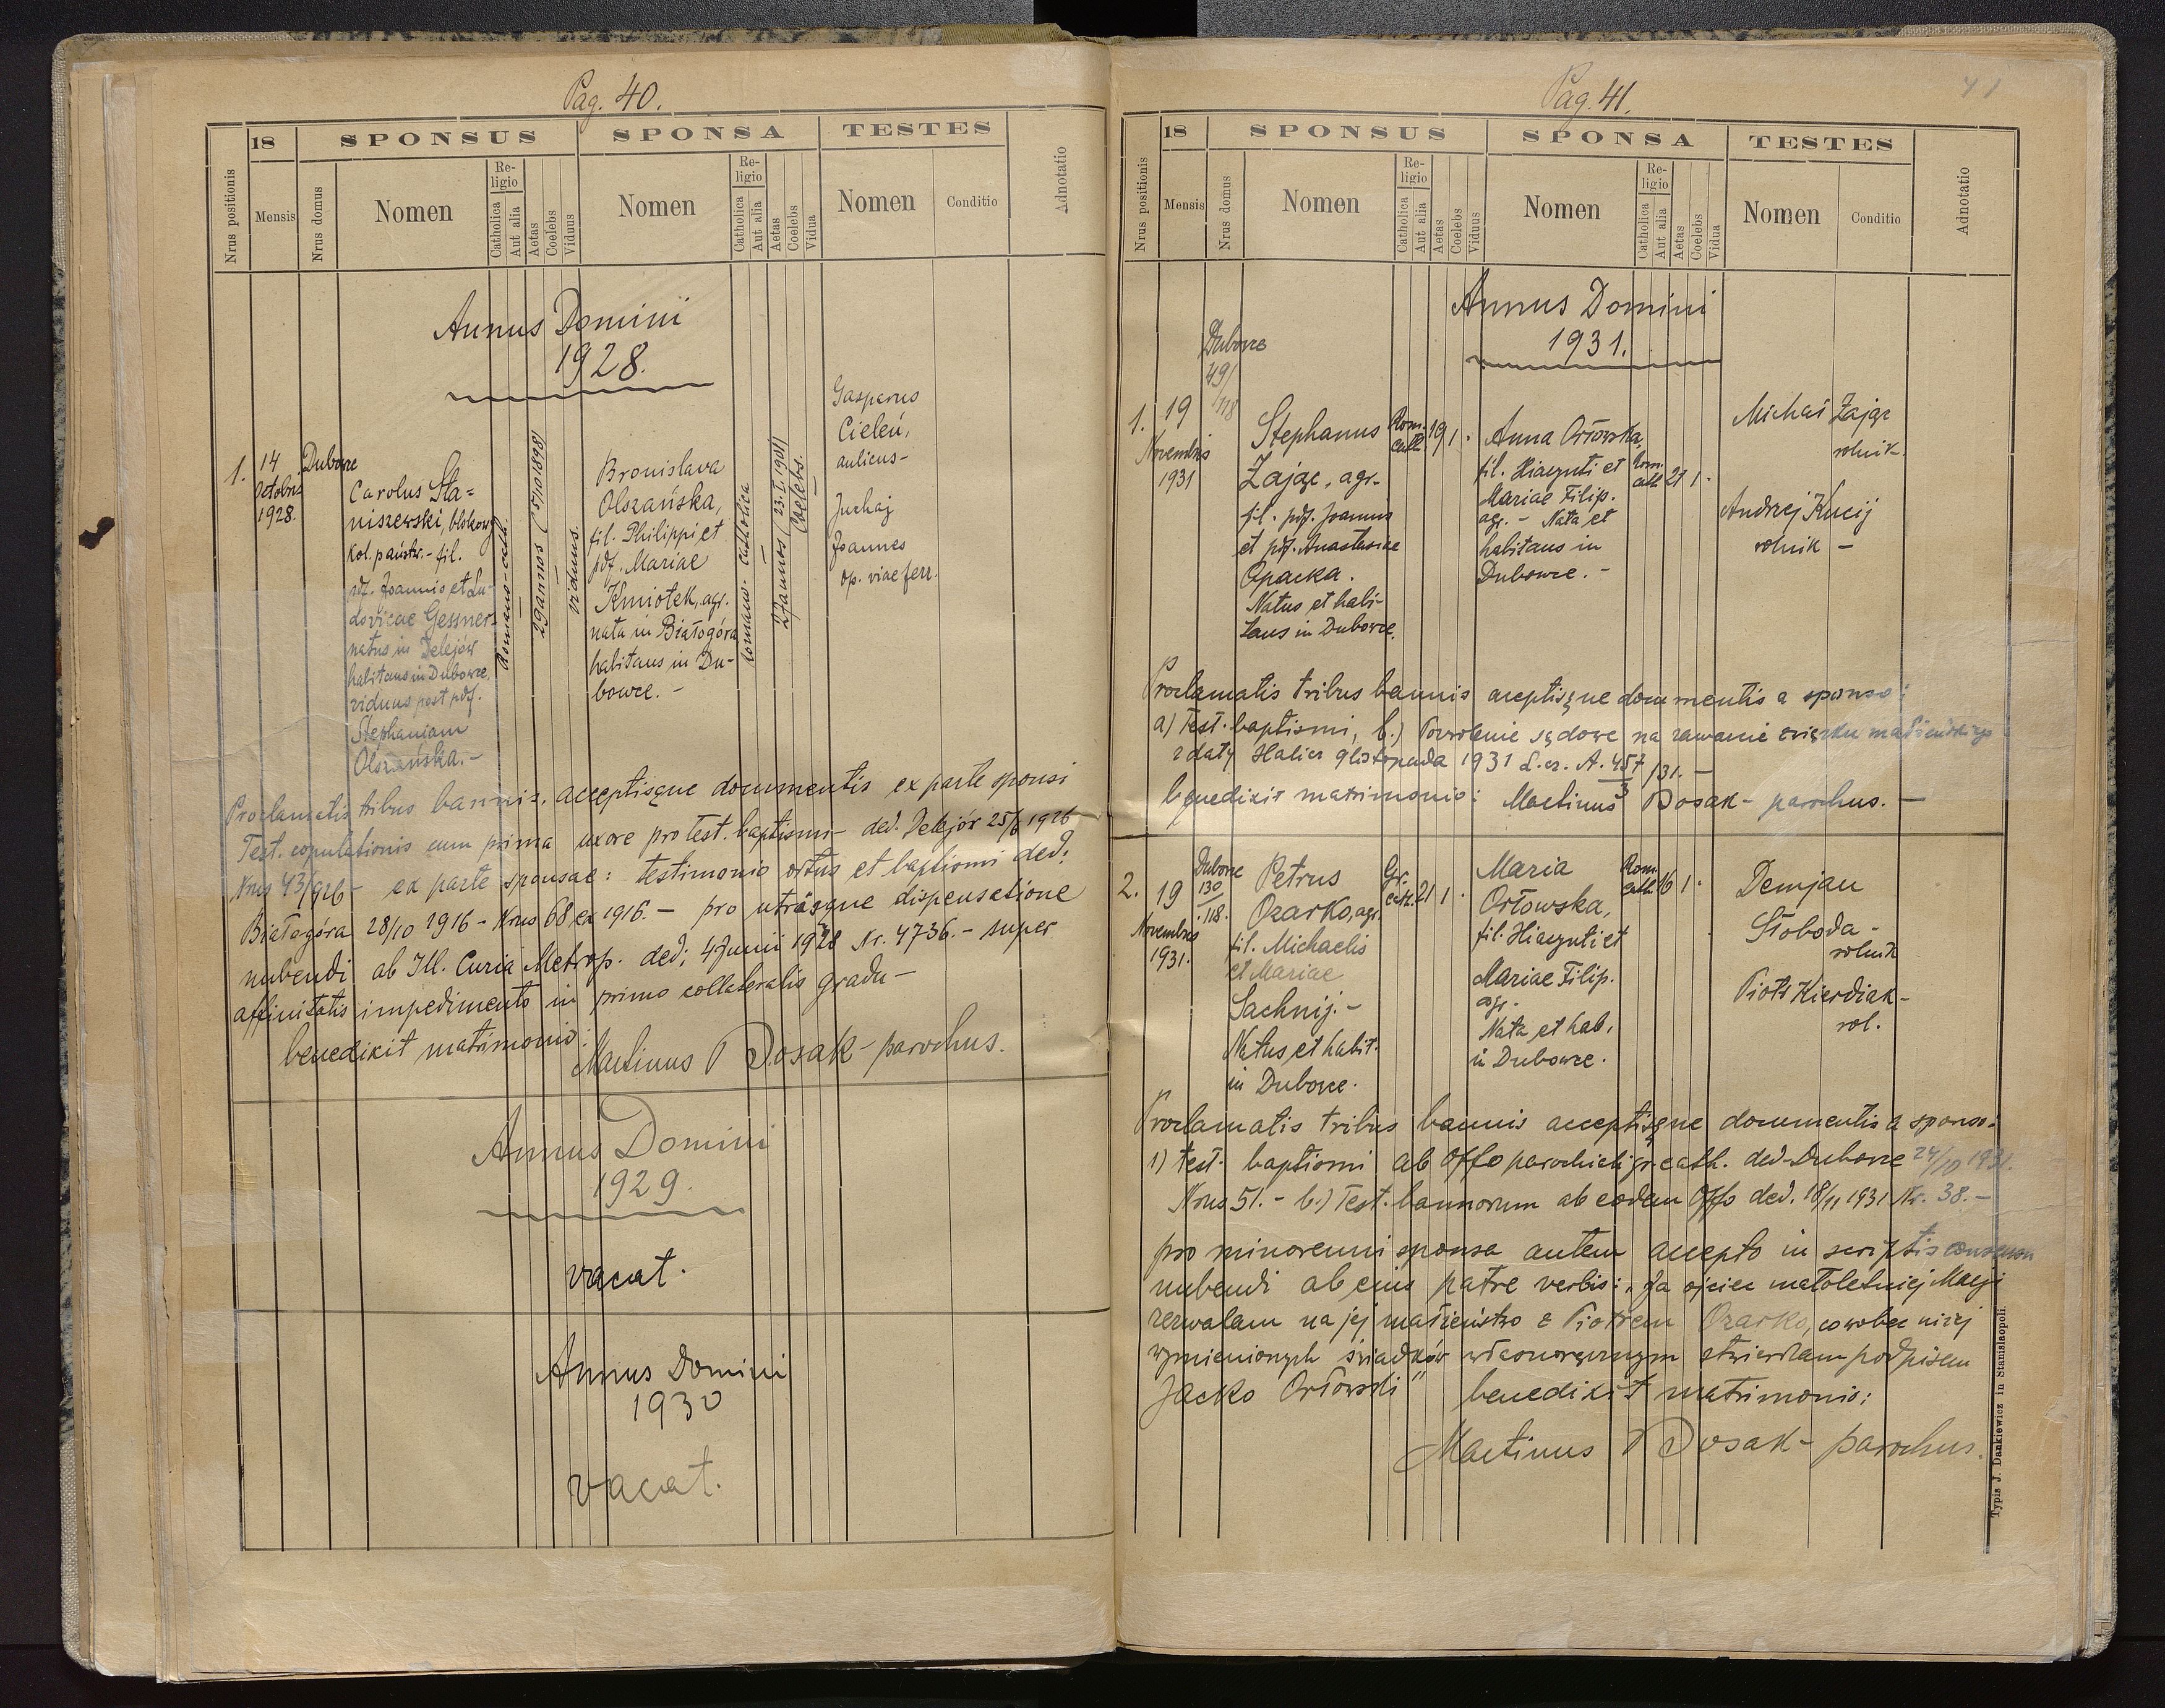 Pag. 40.
Nrus positionis
18
Mensis
Nrus domus
SPONSUS
Nomen
Re-
ligio
Catholica
Aut alia
Aetas
Coelebs
Viduus
SPONSA
Nomen
Re-
ligio
Catholica
Aut alia
Aetas
Coelebs
Vidua
TESTES
Nomen
Conditio
Adnotatio
Annus Domini
1928.
1.
14
Octobris
1928.
Dubowce
Carolus Sta=
niszewski, blokowy
kol. państw. - fil.
pdf. Joannis et Lu-
dovicae Gessner
natus in Delejów
habitans in Dubowce,
viduus post pdf.
Stephaniam
Olszańska. -
Romano-cath.
29 annos (5/10 1898)
viduus.
Bronislava
Olszańska,
fil. Philippi et
pdf. Mariae
Kmiotek, agr.
nata in Białogóra
habitans in Du-
bowce. -
romano-catholica
27 annos (23.I.1901)
Coelebs.
Gasparus
Cieleń,
aulicus -
Juchaj
Joannes
op. viae ferr.
Proclamatis tribus bannis, acceptisque documentis ex parte sponsi
Test. copulationis cum prima uxore pro test. baptismi - ded. Delejów 25/6 1926
Nrus 43/926 - ex parte sponsae: testimonio ortus et baptismi ded:
Białogóra 28/10 1916 - Nrus 68 ex 1916. - pro utrâque dispensatione
nubendi ab Ill. Curia Metrop. ded; 4 Junii 1928 Nr. 4736. - super
affinitatis impedimento in primo collateralis gradu -
benedixit matrimonio:
Martinus Bosak - parochus.
Annus Domini
1929.
vacat.
Annus Domini
1930
vacat.
Pag. 41.
41
Nrus positionis
18
Mensis
Nrus domus
SPONSUS
Nomen
Re-
ligio
Catholica
Aut alia
Aetas
Coelebs
Viduus
SPONSA
Nomen
Re-
ligio
Catholica
Aut alia
Aetas
Coelebs
Vidua
TESTES
Nomen
Conditio
Adnotatio
Annus Domini
1931.
1.
19
Novembris
1931
Dubowce
49/
/118
Stephanus
Zając, agr.
fil. pdf. Joannis
et pdf. Anastasiae
Opacka.
Natus et habi-
tans in Dubowce.
Rom.
cath.
19 1.
Anna Orłowska,
fil. Hiacynti et
Mariae Filip.
agr. - Nata et
habitans in
Dubowce. -
Rom.
cath.
21 1.
Michał Zając
rolnik.
Andrzej Kucij
rolnik -
Proclamatis tribus bannis acceptisque documentis a sponso:
a) Test. baptismi, b.) Pozwolenie sądowe na zawarcie związku małżeńskiego
z daty Halicz 9 listopada 1931 L. cz. A. 457/31. -
3
benedixit matrimonio: Martinus Bosak - parochus. -
2.
19
Novembris
1931.
Dubowce
130
118.
Petrus
Ozarko, agr.
fil. Michaelis
et Mariae
Sachnij. -
Natus et habit.
in Dubowce.
Gr.
cath.
21 1.
Maria
Orłowska,
fil. Hiacynti et
Mariae Filip.
agr. -
Nata et hab,
in Dubowce.
Rom.
cath.
16 1.
Demjan
Słoboda -
rolnik
Piotr Kierdiak -
rol.
Proclamatis tribus bannis acceptisque documentis a sponso:
1) test. baptismi ab Offo parochiali gr. cath. ded. Dubowce 24/10 1931.
Nrus 51. - b.) Test. bannorum ab eodem Offo ded. 18/11 1931 Nr. 38. -
pro minorenni sponsa autem accepto in scriptis consensu
nubendi ab eius patre verbis: „Ja ojciec małoletniej Marji
zezwalam na jej małżeństwo z Piotrem Ozarko, co wobec niżej
wymienionych świadków własnoręcznym stwierdzam podpisem
Jacko Orłowski" benedixit matrimonio:
Martinus Bosak - parochus.
Typis J. Dankiewicz in Stanislaopoli